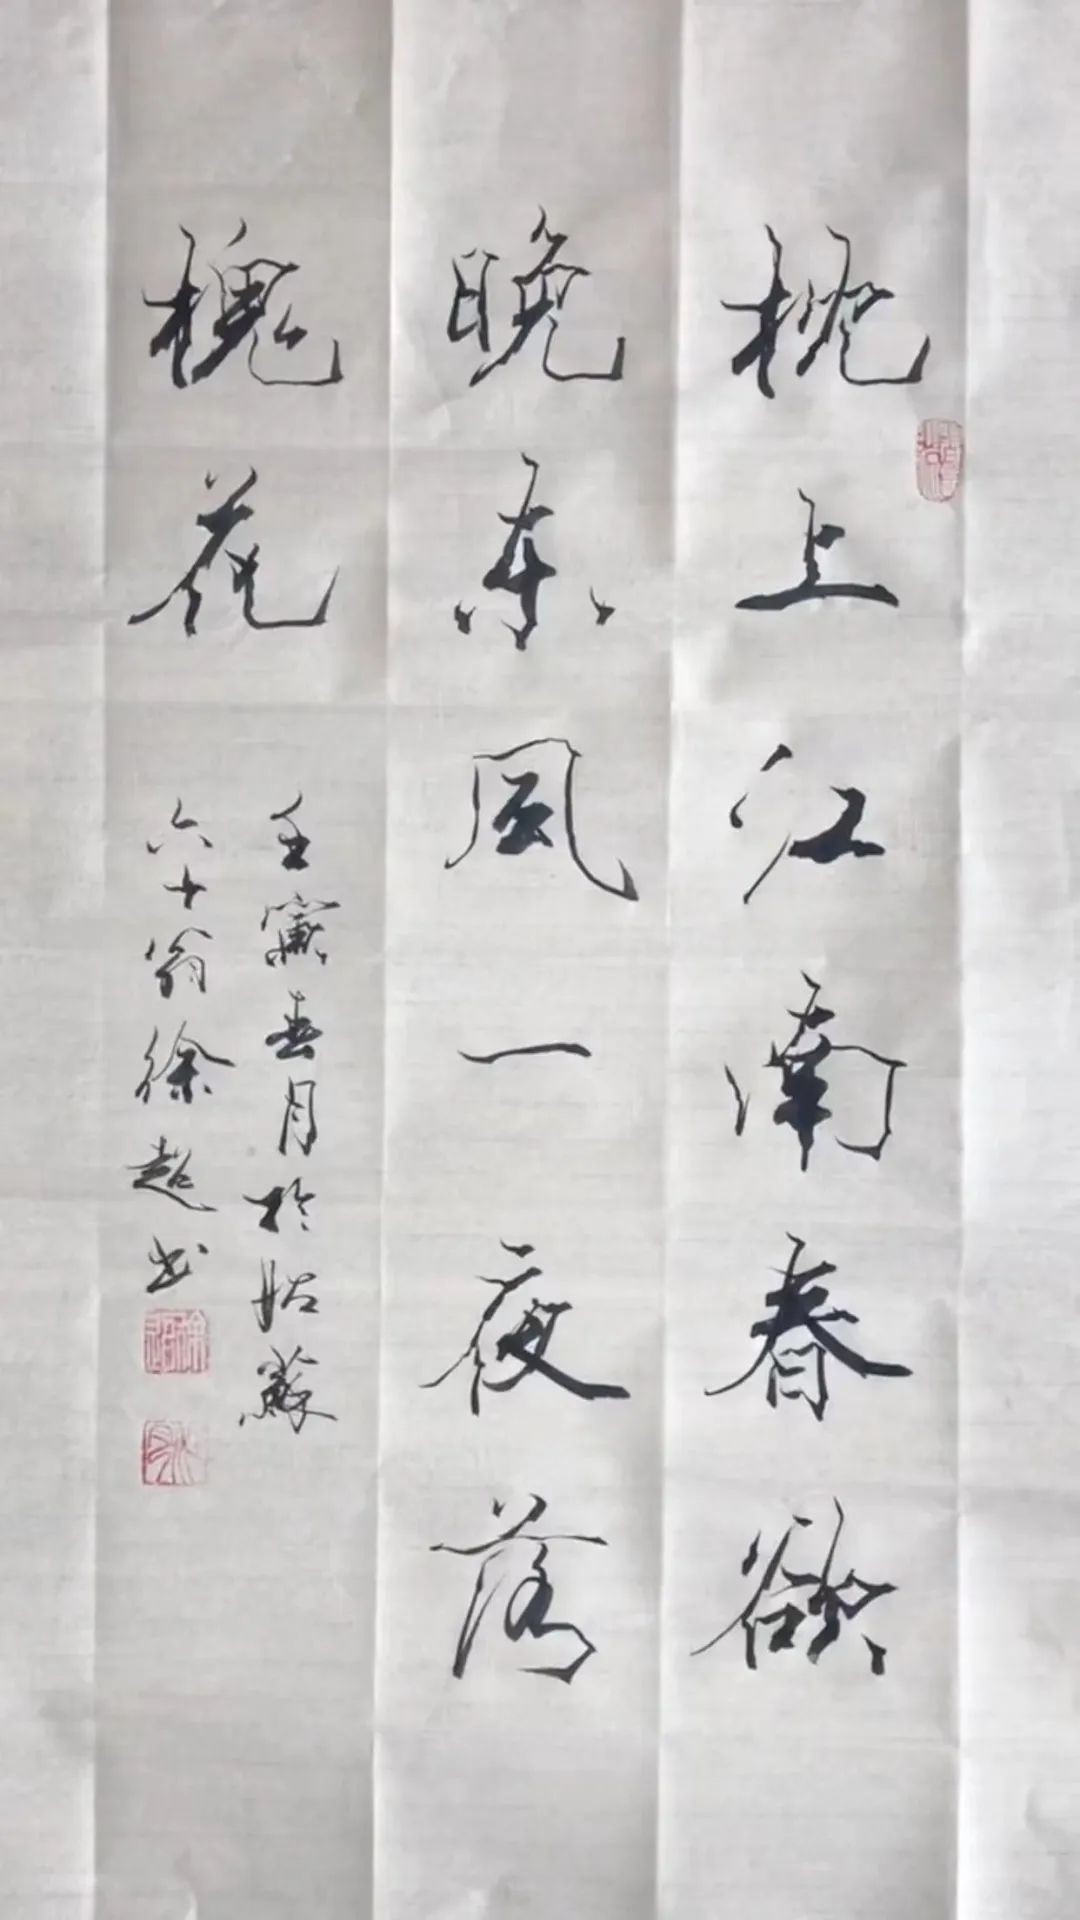 枕上江南春欲
晚东风一夜落
槐花
壬寅春月於姑蘇
六十翁徐超书